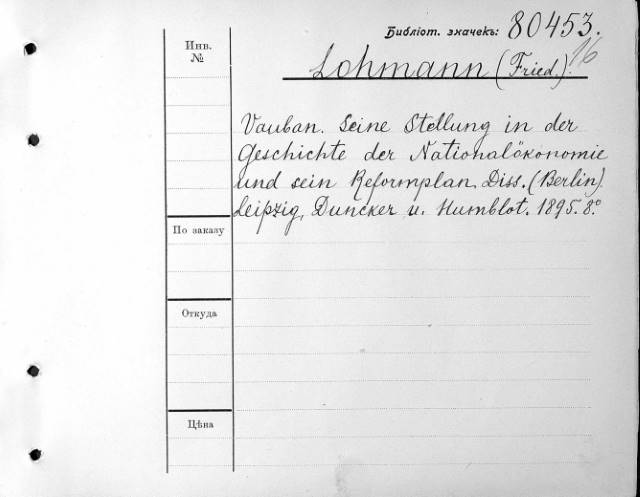 Библіот. значекъ: 80453.
16
Инв.
№
Lohmann (Fried.).
Vauban. Seine Stellung in der
Geschichte der Nationalökonomie
und sein Reformplan. Diss. (Berlin).
Leipzig, Duncker u. Humblot. 1895. 8.°
По заказу
Откуда
Цѣна